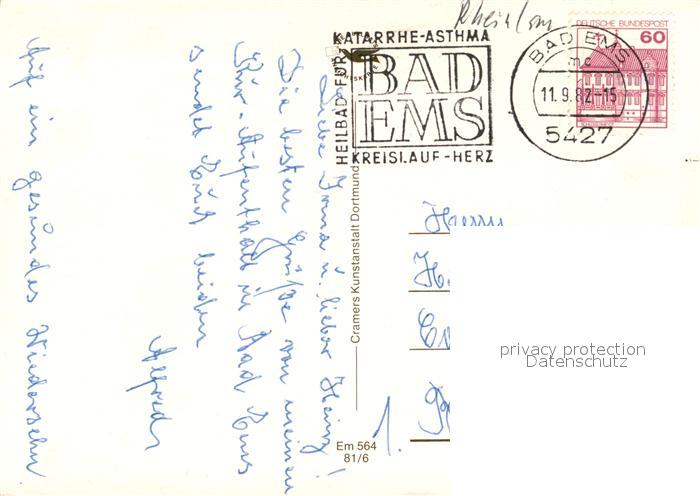 Rheinlam
DEUTSCHE BUNDESPOST
60
KATARRHE-ASTHMA
HEILBAD FÜR
BAD
EMS
KREISLAUF-HERZ
BAD EMS
mc
11.9.82-15
5427
Liebe Irma u. lieber Heinz!
Die besten Grüße von meinem
Kur-Aufenthalt in Bad Ems
sendet Euch beiden
Alfred
Auf ein gesundes Wiedersehn
Cramers Kunstanstalt Dortmund
Em 564
81/6
Herrn
H
1.
privacy protection
Datenschutz